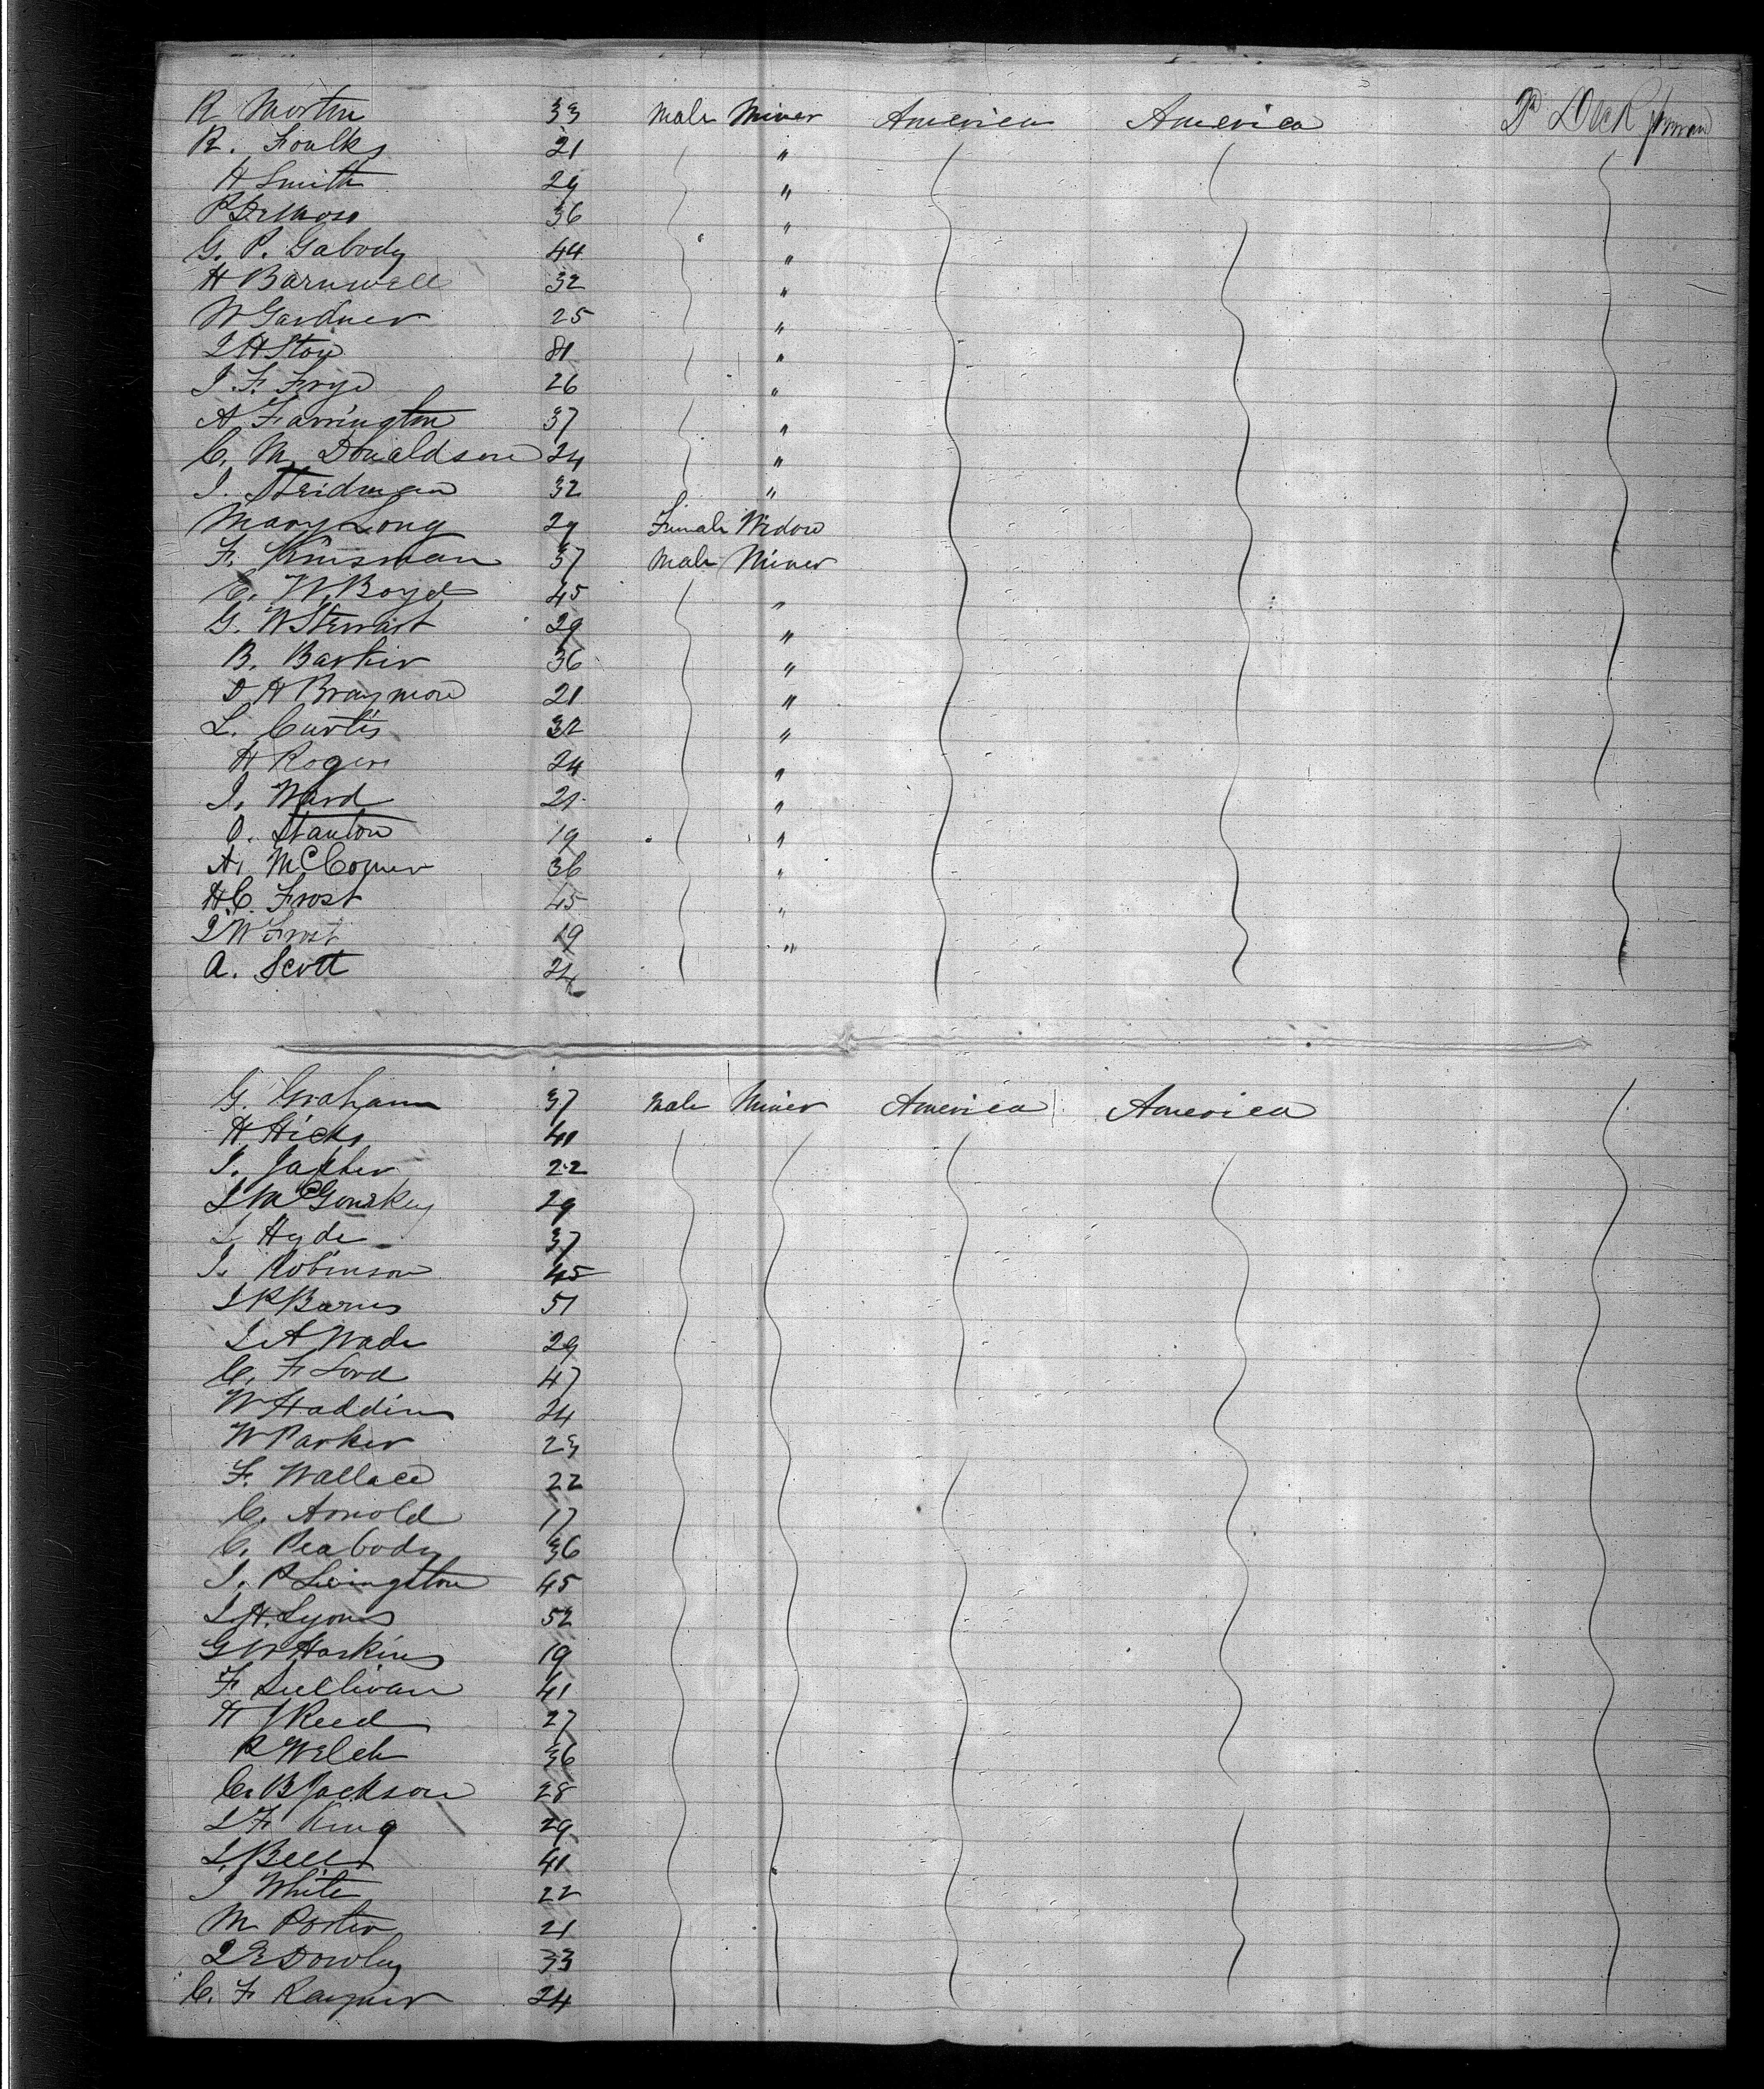 R Morton 33 Male Miner America America Dn Deck
R. Foulks 21 "
H Smith 29 "
P 36 "
G. P. Gabody 44 "
H Barnwell 32 "
W Gardner 25 "
J H Stow 31 "
J. F. Frye 26 "
A Farrington 37 "
C. M. Donaldson 24 "
J. Steidman 32 "
Mary Long 29 Female Widow
F. Kinsman 37 Male Miner
C. W. Boyd 45 "
G. W Stewart 29 "
B. Barker 36 "
D H Braymore 21 "
L. Curtis 32 "
H Rogers 24 "
J. Ward 21 "
O. Stanton 19 "
A. McComer 36 "
H. C. Frost 45 "
J W Frost 19 "
A. Scott 24
G. Graham 37 Male Miner America America
H Hicks 41
J. 22
29
J. Hyde 37
J. Robinson 45
J P Barnes 51
J A Wade 29
C. F Lord 47
W Haddin 24
W Parker 23
F. Wallace 22
C. Arnold 17
C. Peabody 36
J. P Livingston 45
J. H. Lyons 52
G W Haskins 19
F Sullivan 41
H J Reed 27
R Welch 36
C. B Jackson 28
J F King 29
J. Bell 41
J White 22
M Porter 21
J E Dowley 33
C. F Rayner 24